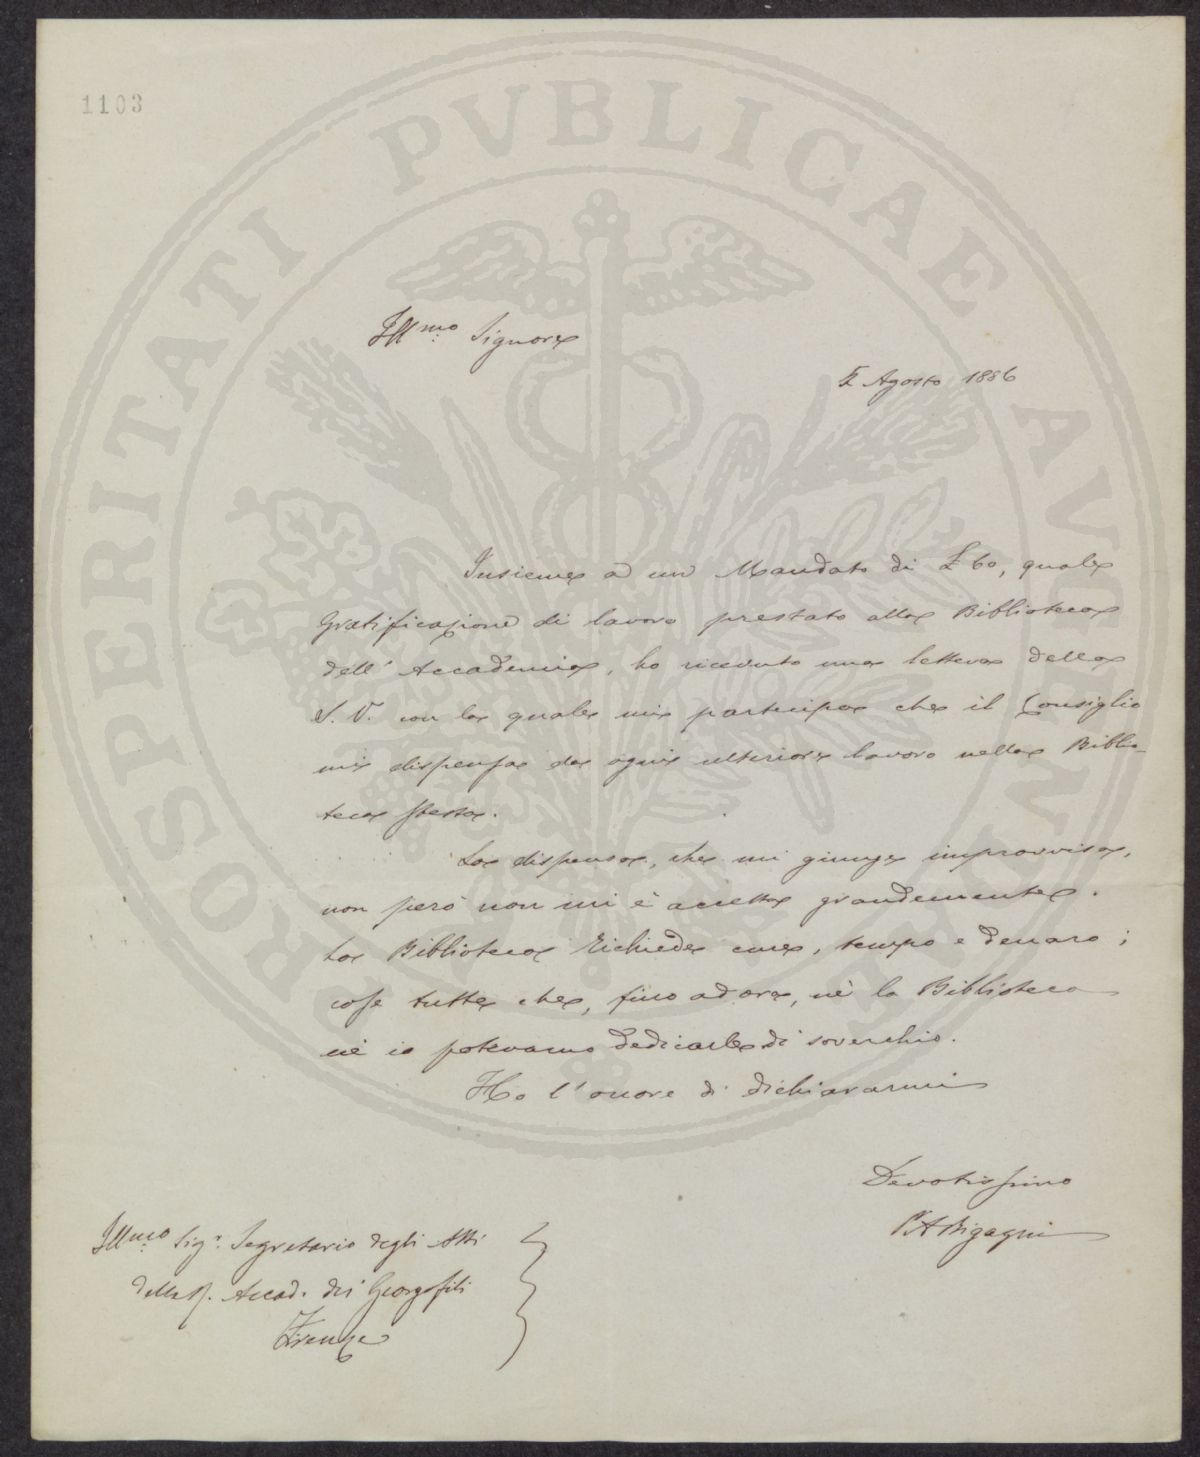 1103
PROSPERITATI PVBLICAE AVGENDAE
Ill.mo Signore
Agosto 1886
Insieme a un Mandato di £ 60, quale
gratificazione di lavoro prestato alla Biblioteca
dell' Accademia, ho ricevuto una lettera della
S. V. con la quale mi partecipa che il Consiglio
mi dispensa da ogni ulteriore lavoro nella Biblio-
teca stessa.
La dispensa, che mi giunge improvvisa,
non però non mi è accetta grandemente.
La Biblioteca richiede cure, tempo e denaro;
cose tutte che, fino ad ora, nè la Biblioteca
nè io potevamo dedicarle di soverchio.
Ho l'onore di dichiararmi
Devotissimo
Bigagni
Ill.mo Sig.r Segretario degli Atti
della R. Accad. dei Georgofili
Firenze